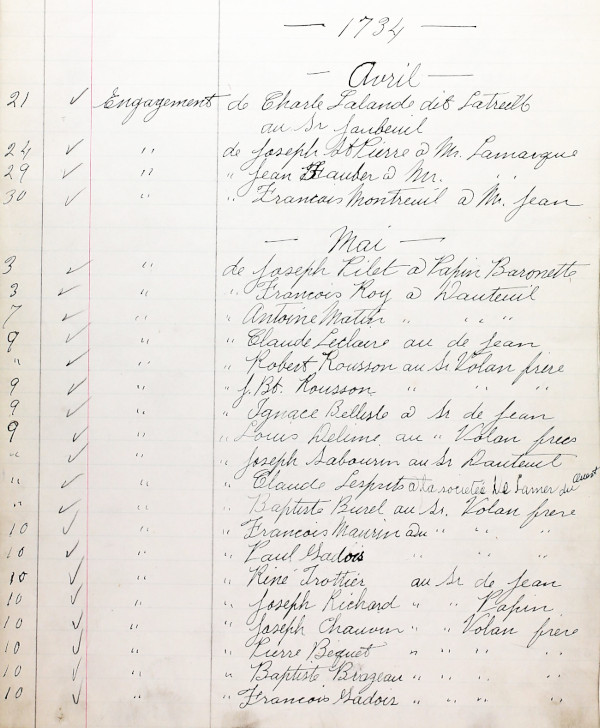 — 1734 —
— Avril —
21 ✓ Engagement de Charle Lalande dit Latreill
au Sr
24 ✓ " de Joseph St Pierre a Mr. Lamarque
29 ✓ " " Jean a Mr. " "
30 ✓ " " Francois Montreuil a Mr. Jean
— Mai —
3 ✓ " de Joseph Pilet a Papin Baronette
3 ✓ " " Francois Roy a Dauteuil
7 ✓ " " Antoine Matin " " "
9 ✓ " " Claude Leclaire au de Jean
" ✓ " " Robert Rousson au Sr Volan frere
9 ✓ " " J. Bt. Rousson " " "
9 ✓ " " Ignace Belliste a Sr de Jean
9 ✓ " " Louis Delime au " Volan frere
" ✓ " " Joseph Sabourin au Sr Dauteuil
" ✓ " " Claude a la societé de Lamer du ouest
" ✓ " " Baptiste Burel au Sr. Volan frere
10 ✓ " " Francois Maurin au " " "
10 ✓ " " Paul Gadois " " "
10 ✓ " " Riné Trottier au Sr de Jean
10 ✓ " " Joseph Richard " " Papin
10 ✓ " " Joseph Chauvin " " Volan frere
10 ✓ " " Pierre Bequet " " " "
10 ✓ " " Baptiste Brazeau " " " "
10 ✓ " " Francois Gadois " " " "